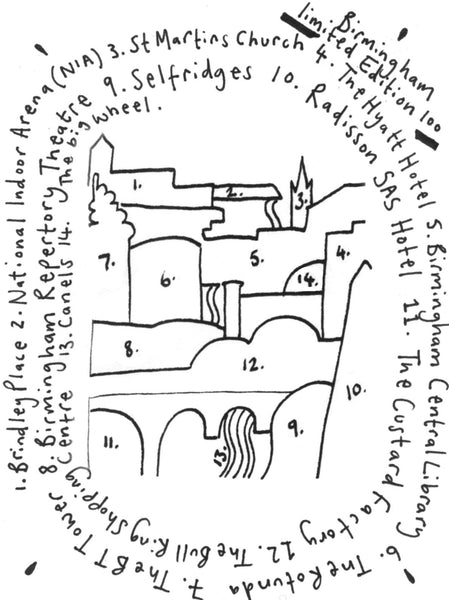 Birmingham
limited Edition 100
1. Brindley Place 2. National Indoor Arena (NIA) 3. St Martins Church 4. The Hyatt Hotel 5. Birmingham Central Library 6. The Rotunda 7. The BT Tower
8. Birmingham Repertory Theatre 9. Selfridges 10. Radisson SAS Hotel 11. The Custard Factory 12. The Bull Ring Shopping
Centre 13. Canels 14. The big wheel.
1.
2.
3.
4.
7.
6.
5.
14.
8.
12.
10.
11.
13.
9.